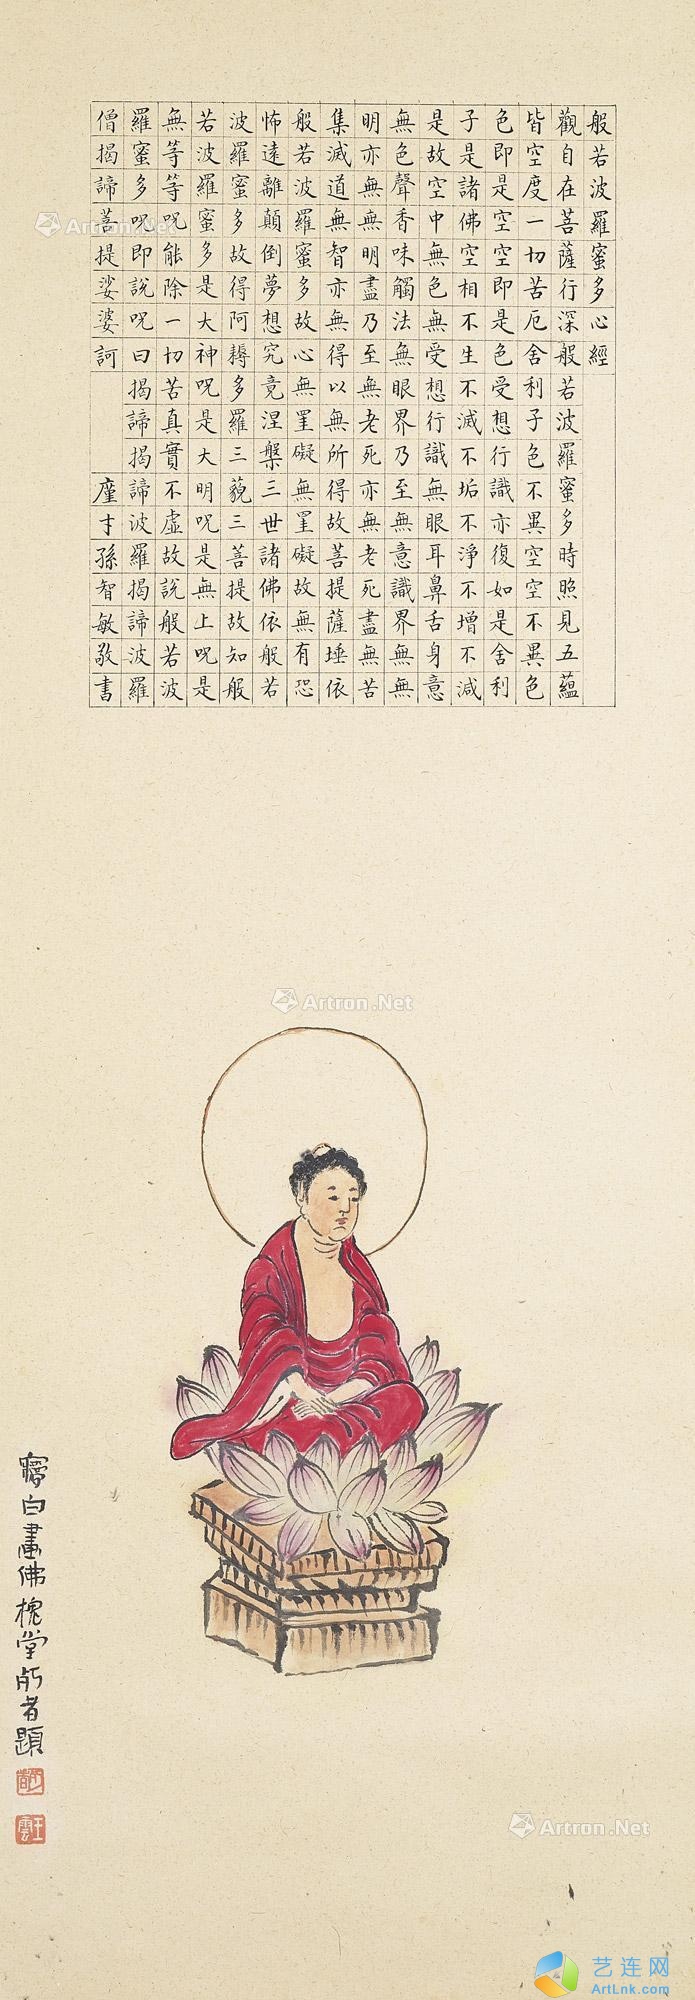 般若波羅蜜多心經
觀自在菩薩行深般若波羅蜜多時照見五蘊
皆空度一切苦厄舍利子色不異空空不異色
色即是空空即是色受想行識亦復如是舍利
子是諸佛空相不生不滅不垢不淨不增不減
是故空中無色無受想行識無眼耳鼻舌身意
無色聲香味觸法無眼界乃至無意識界無無
明亦無無明盡乃至無老死亦無老死盡無苦
集滅道無智亦無得以無所得故菩提薩埵依
般若波羅蜜多故心無罣礙無罣礙故無有恐
怖遠離顛倒夢想究竟涅槃三世諸佛依般若
波羅蜜多故得阿耨多羅三藐三菩提故知般
若波羅蜜多是大神呪是大明呪是無上呪是
無等等呪能除一切苦真實不虛故說般若波
羅蜜多呪即說呪曰揭諦揭諦波羅揭諦波羅
僧揭諦菩提娑婆訶 廑才孫智敏敬書
㝱白畫佛槐堂朽者題
王雲
Artron.Net
Artron.Net
Artron.Net
Artron.Net
艺连网
ArtLnk.com